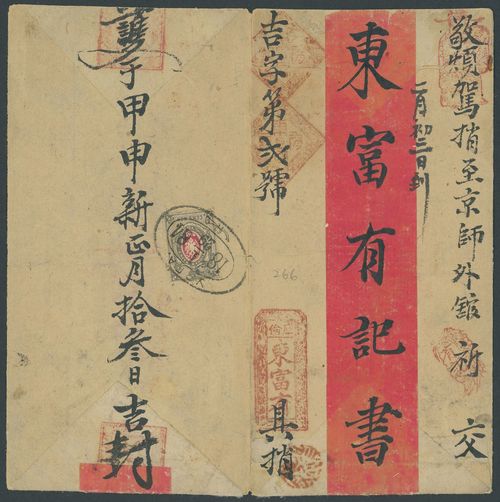 敬煩駕捎至京師外舘祈 交
二月初三日到
東富有記書
吉字第弍號
具捎
東富有
266
謹于甲申新正月拾叁日吉封